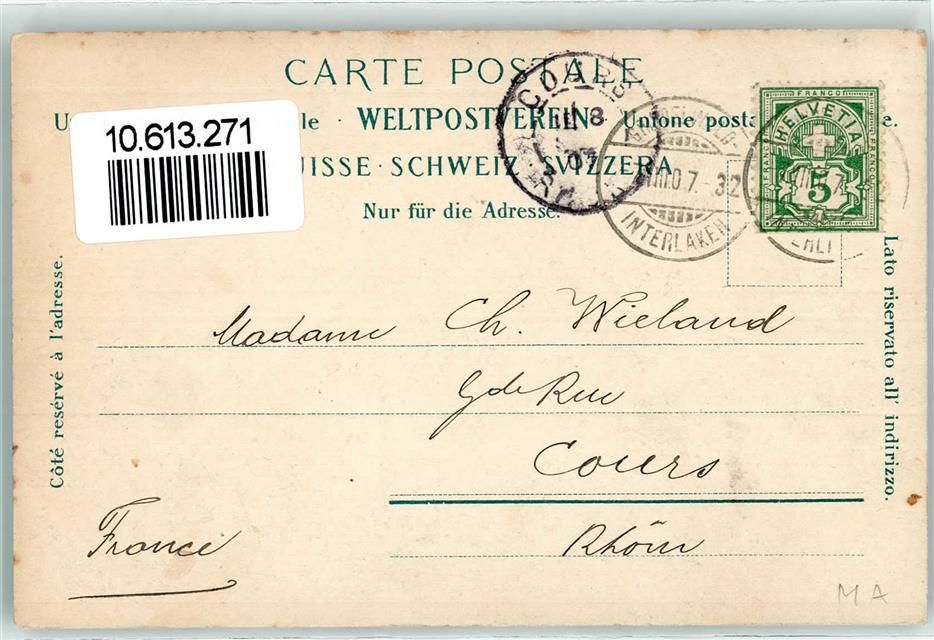 CARTE POSTALE
WELTPOSTVEREIN · Unione posta
10.613.271
UISSE · SCHWEIZ · SVIZZERA
Nur für die Adresse.
COURS
INTERLAKEN
FRANCO
HELVETIA
5
Côté resérvé à l'adresse.
Lato riservato all' indirizzo.
Madame Ch. Wieland
Gde Rue
Cours
Rhône
France
MA